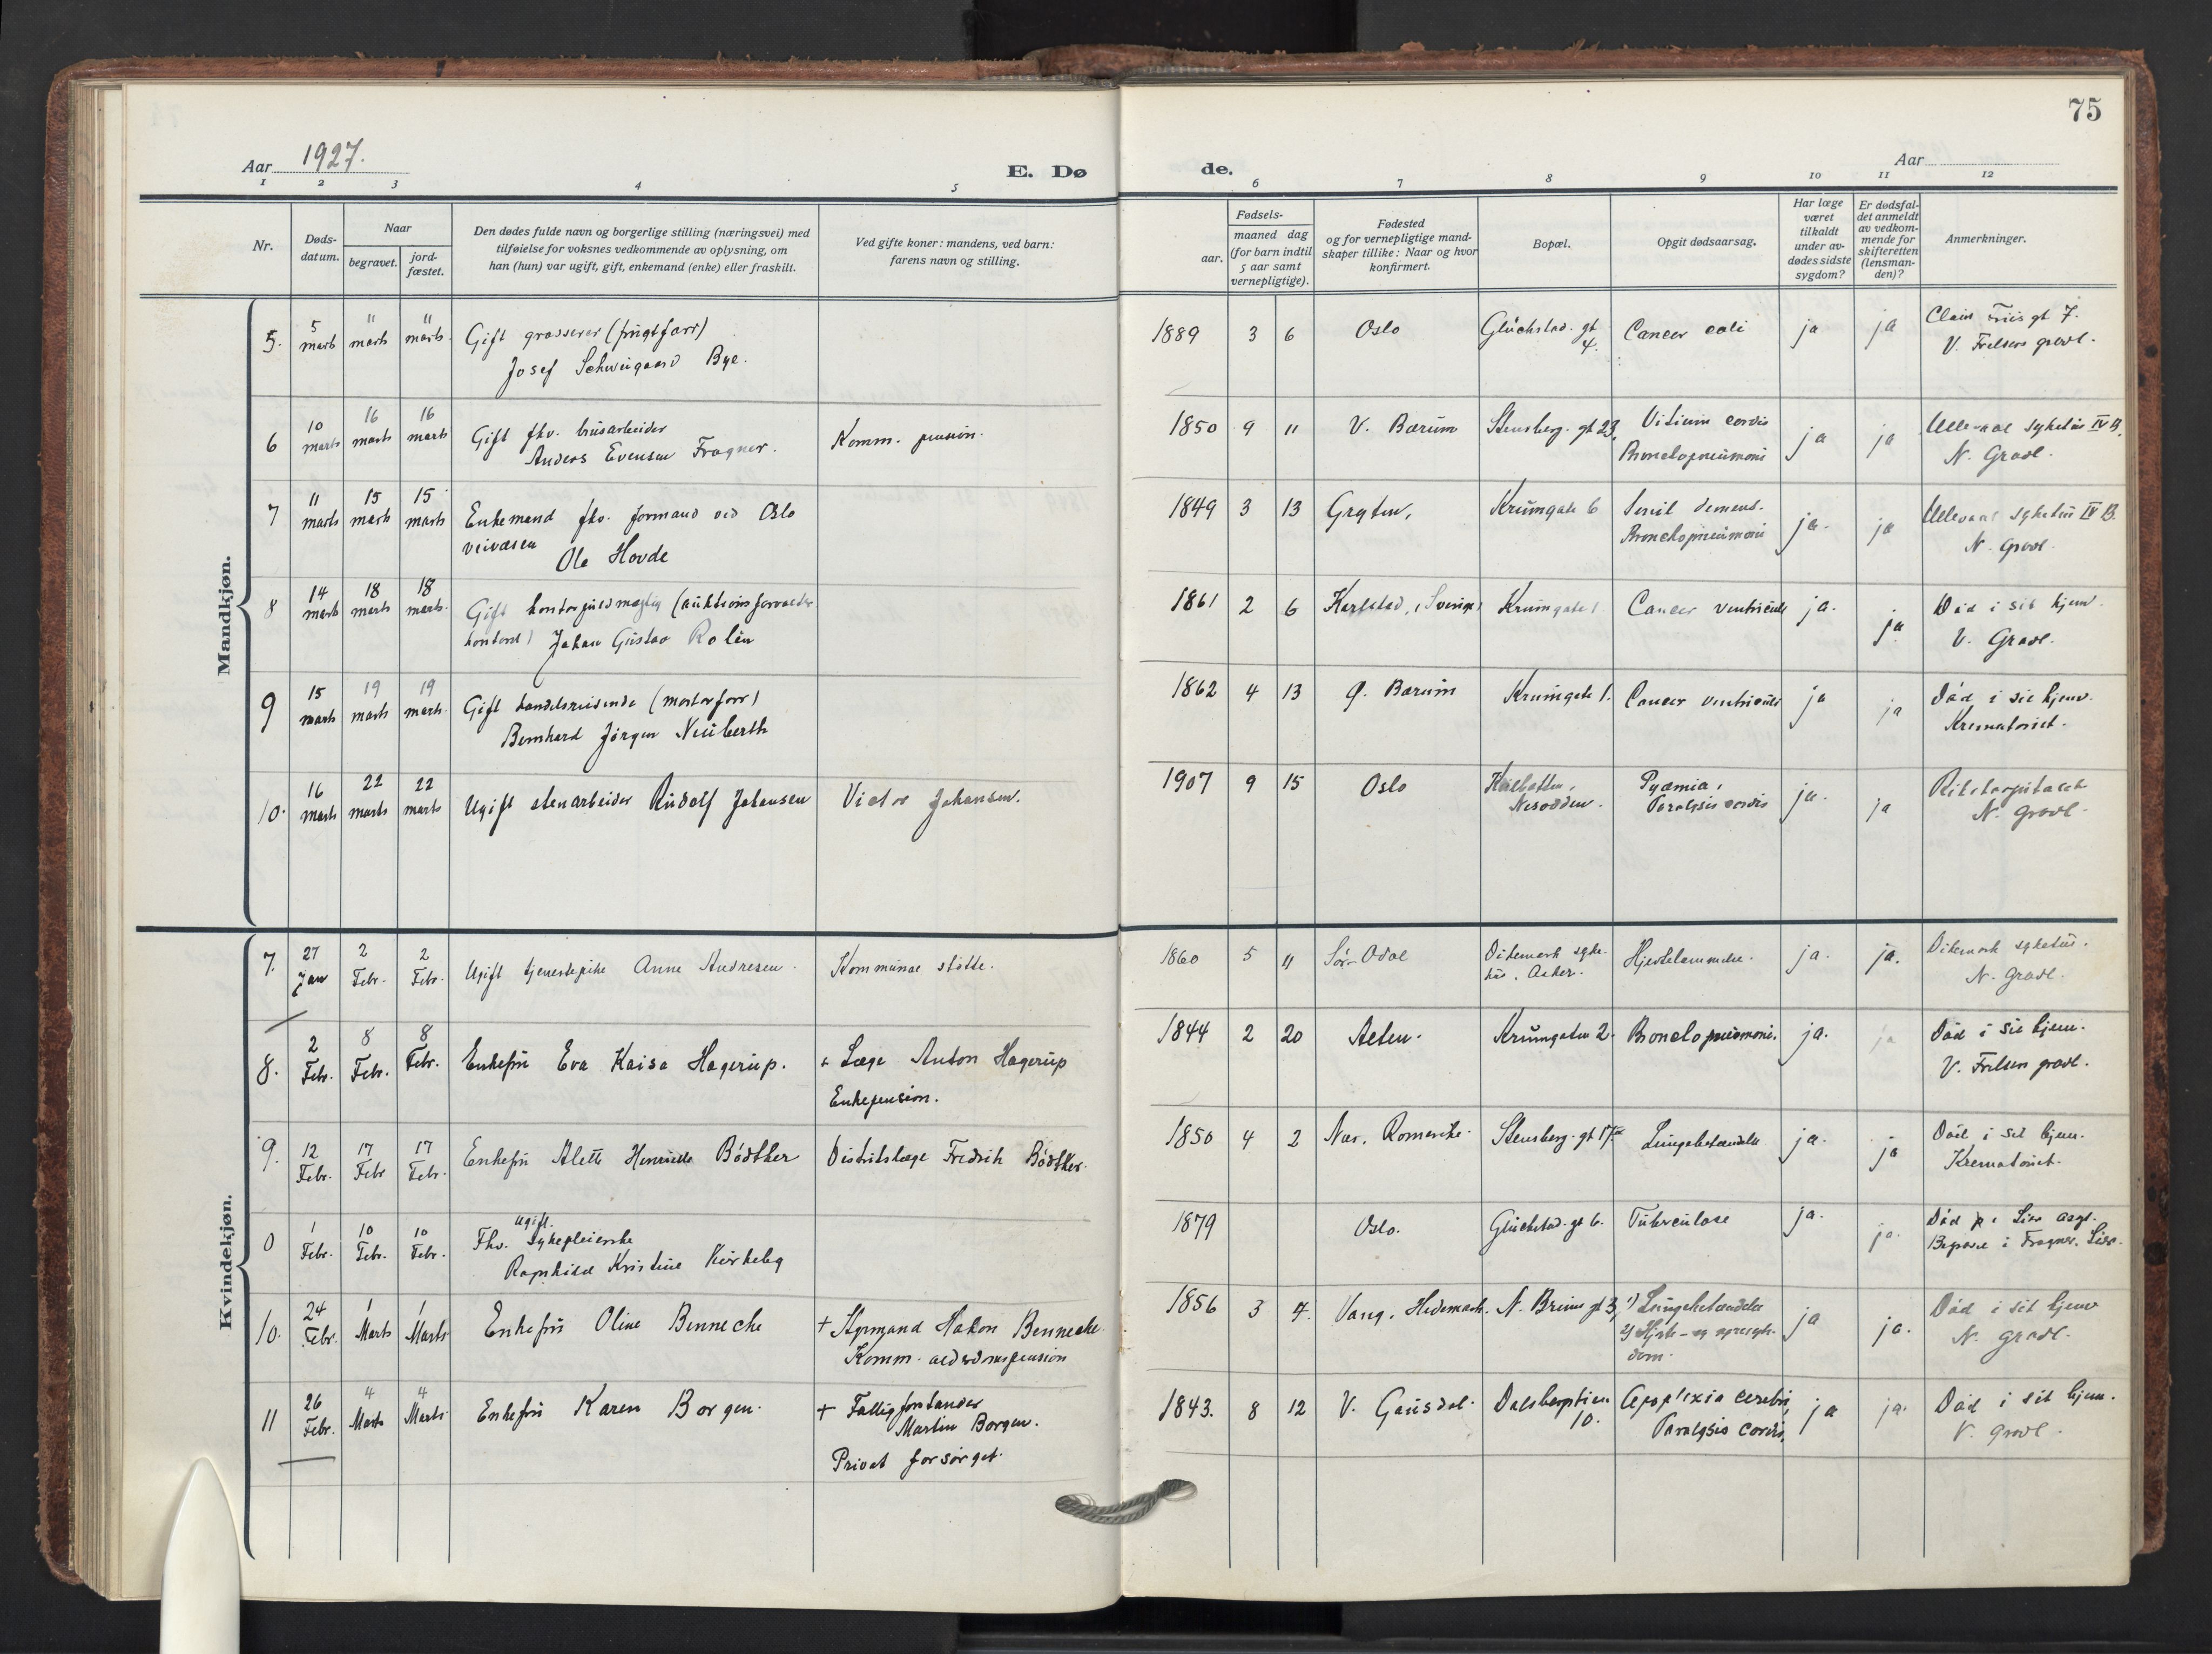 75
Aar 1927.
E. Dø
de.
Aar
1 2 3 4 5 6 7 8 9 10 11 12
Nr.
Døds-
datum.
Naar
begravet.
jord-
fæstet.
Den dødes fulde navn og borgerlige stilling (næringsvei) med
tilføielse for voksnes vedkommende av oplysning, om
han (hun) var ugift, gift, enkemand (enke) eller fraskilt.
Ved gifte koner: mandens, ved barn:
farens navn og stilling.
Fødsels-
aar.
maaned dag
(for barn indtil
5 aar samt
vernepligtige).
Fødested
og for vernepligtige mand-
skaper tillike: Naar og hvor
konfirmert.
Bopæl.
Opgit dødsaarsag.
Har læge
været
tilkaldt
under av-
dødes sidste
sygdom?
Er dødsfal-
det anmeldt
av vedkom-
mende for
skifteretten
(lensman-
den)?
Anmerkninger.
Mandkjøn.
5. 5 marts 11 marts 11 marts. Gift grosserer (frugtforr)
Josef Schweigaard Bye.
1889 3 6 Oslo Glückstad. gt 4. Cancer coli ja ja Friis gt 7.
V. Frelsers gravl.
6 10 marts 16 marts 16 marts Gift fhv. husarbeider
Anders Evensen Fragner. Komm. pension.
1850 9 11 V. Bærum Stensberg. gt 23. Vitium cordis
Bronchopneumoni ja ja Ullevaal sykehus IV B.
N. Gravl.
7 11 marts 15 marts 15 marts Enkemand fhv. formand ved Oslo
veivæsen Ole Hovde
1849 3 13 Gryten, Krumgate 6 Senil demens.
Bronchopneumoni ja. ja Ullevaal sykehus IV B.
N. gravl.
8 14 marts 18 marts 18 marts. Gift kontorfuldmægtig (auktionsforvalter
kontoret) Johan Gustav Rolén
1861 2 6 Karlstad, (Sverige) Krumgate 1 Cancer ventriculi ja. ja Død i sit hjem.
V. Gravl.
9 15 marts 19 marts 19 marts. Gift handelsreisende
Bernhard Jørgen Neuberth
1862 4 13 Ø. Bærum Krumgate 1. Cancer ventriculi ja ja Død i sit hjem.
Krematoriet.
10. 16 marts 22 marts 22 marts Ugift stenarbeider Rudolf Johansen Victor Johansen.
1907 9 15 Oslo Nesodden. Pyæmia,
Paralysis cordis ja. ja Rikshospitalet
N. gravl.
Kvindekjøn.
7. 27 Jan 2 Febr. 2 Febr. Ugift tjenestepike Anne Andresen. Kommunal støtte.
1860 5 11 Sør-Odal Dikemark syke-
hus. Asker. Hjertelammelse. ja. ja. Dikemark sykehus.
N. gravl.
8. 2 Febr. 8 Febr. 8 Febr. Enkefru Eva Kaisa Hagerup. + Læge Anton Hagerup
Enkepension.
1844 2 20 Alten. Krumgaten 2. Bronchopneumoni. ja. ja Død i sit hjem.
V. Frelsers gravl.
9. 12 Febr. 17 Febr 17 Febr. Enkefru Alette Henriette Bødtker Distriktslæge Fredrik Bødtker.
1850 4 2 Nes. Romerike. Stensberg. gt 17 Lungebetændelse ja. ja Død i sit hjem.
Krematoriet.
0 1 Febr. 10 Febr. 10 Febr. Fhv. ugift. sykepleierske
Ragnhild Kristine Kirkeby
1879 Oslo. Glückstad. gt 6. Tuberkulose ja. ja. Død
i Fragner. Lier.
10. 24 Febr. 1 Marts 1 Marts Enkefru Oline Benneche + Styrmand Hakon Benneche.
Komm. alderdomspension
1856 3 7. Vang. Hedemark. N. Bruns gt 3, 1) Lungebetændelse
2) Hjerte- og nyresyk-
dom. ja ja. Død i sit hjem
N. gravl.
11 26 Febr. 4 Marts 4 Marts Enkefru Karen Borgen. + Fattigforstander
Martin Borgen.
Privat forsørget.
1843. 8 12 V. Gausdal. Dalsbergstien 10. Apoplexia cerebri,
Paralysis cordis, ja ja. Død i sit hjem.
V. gravl.